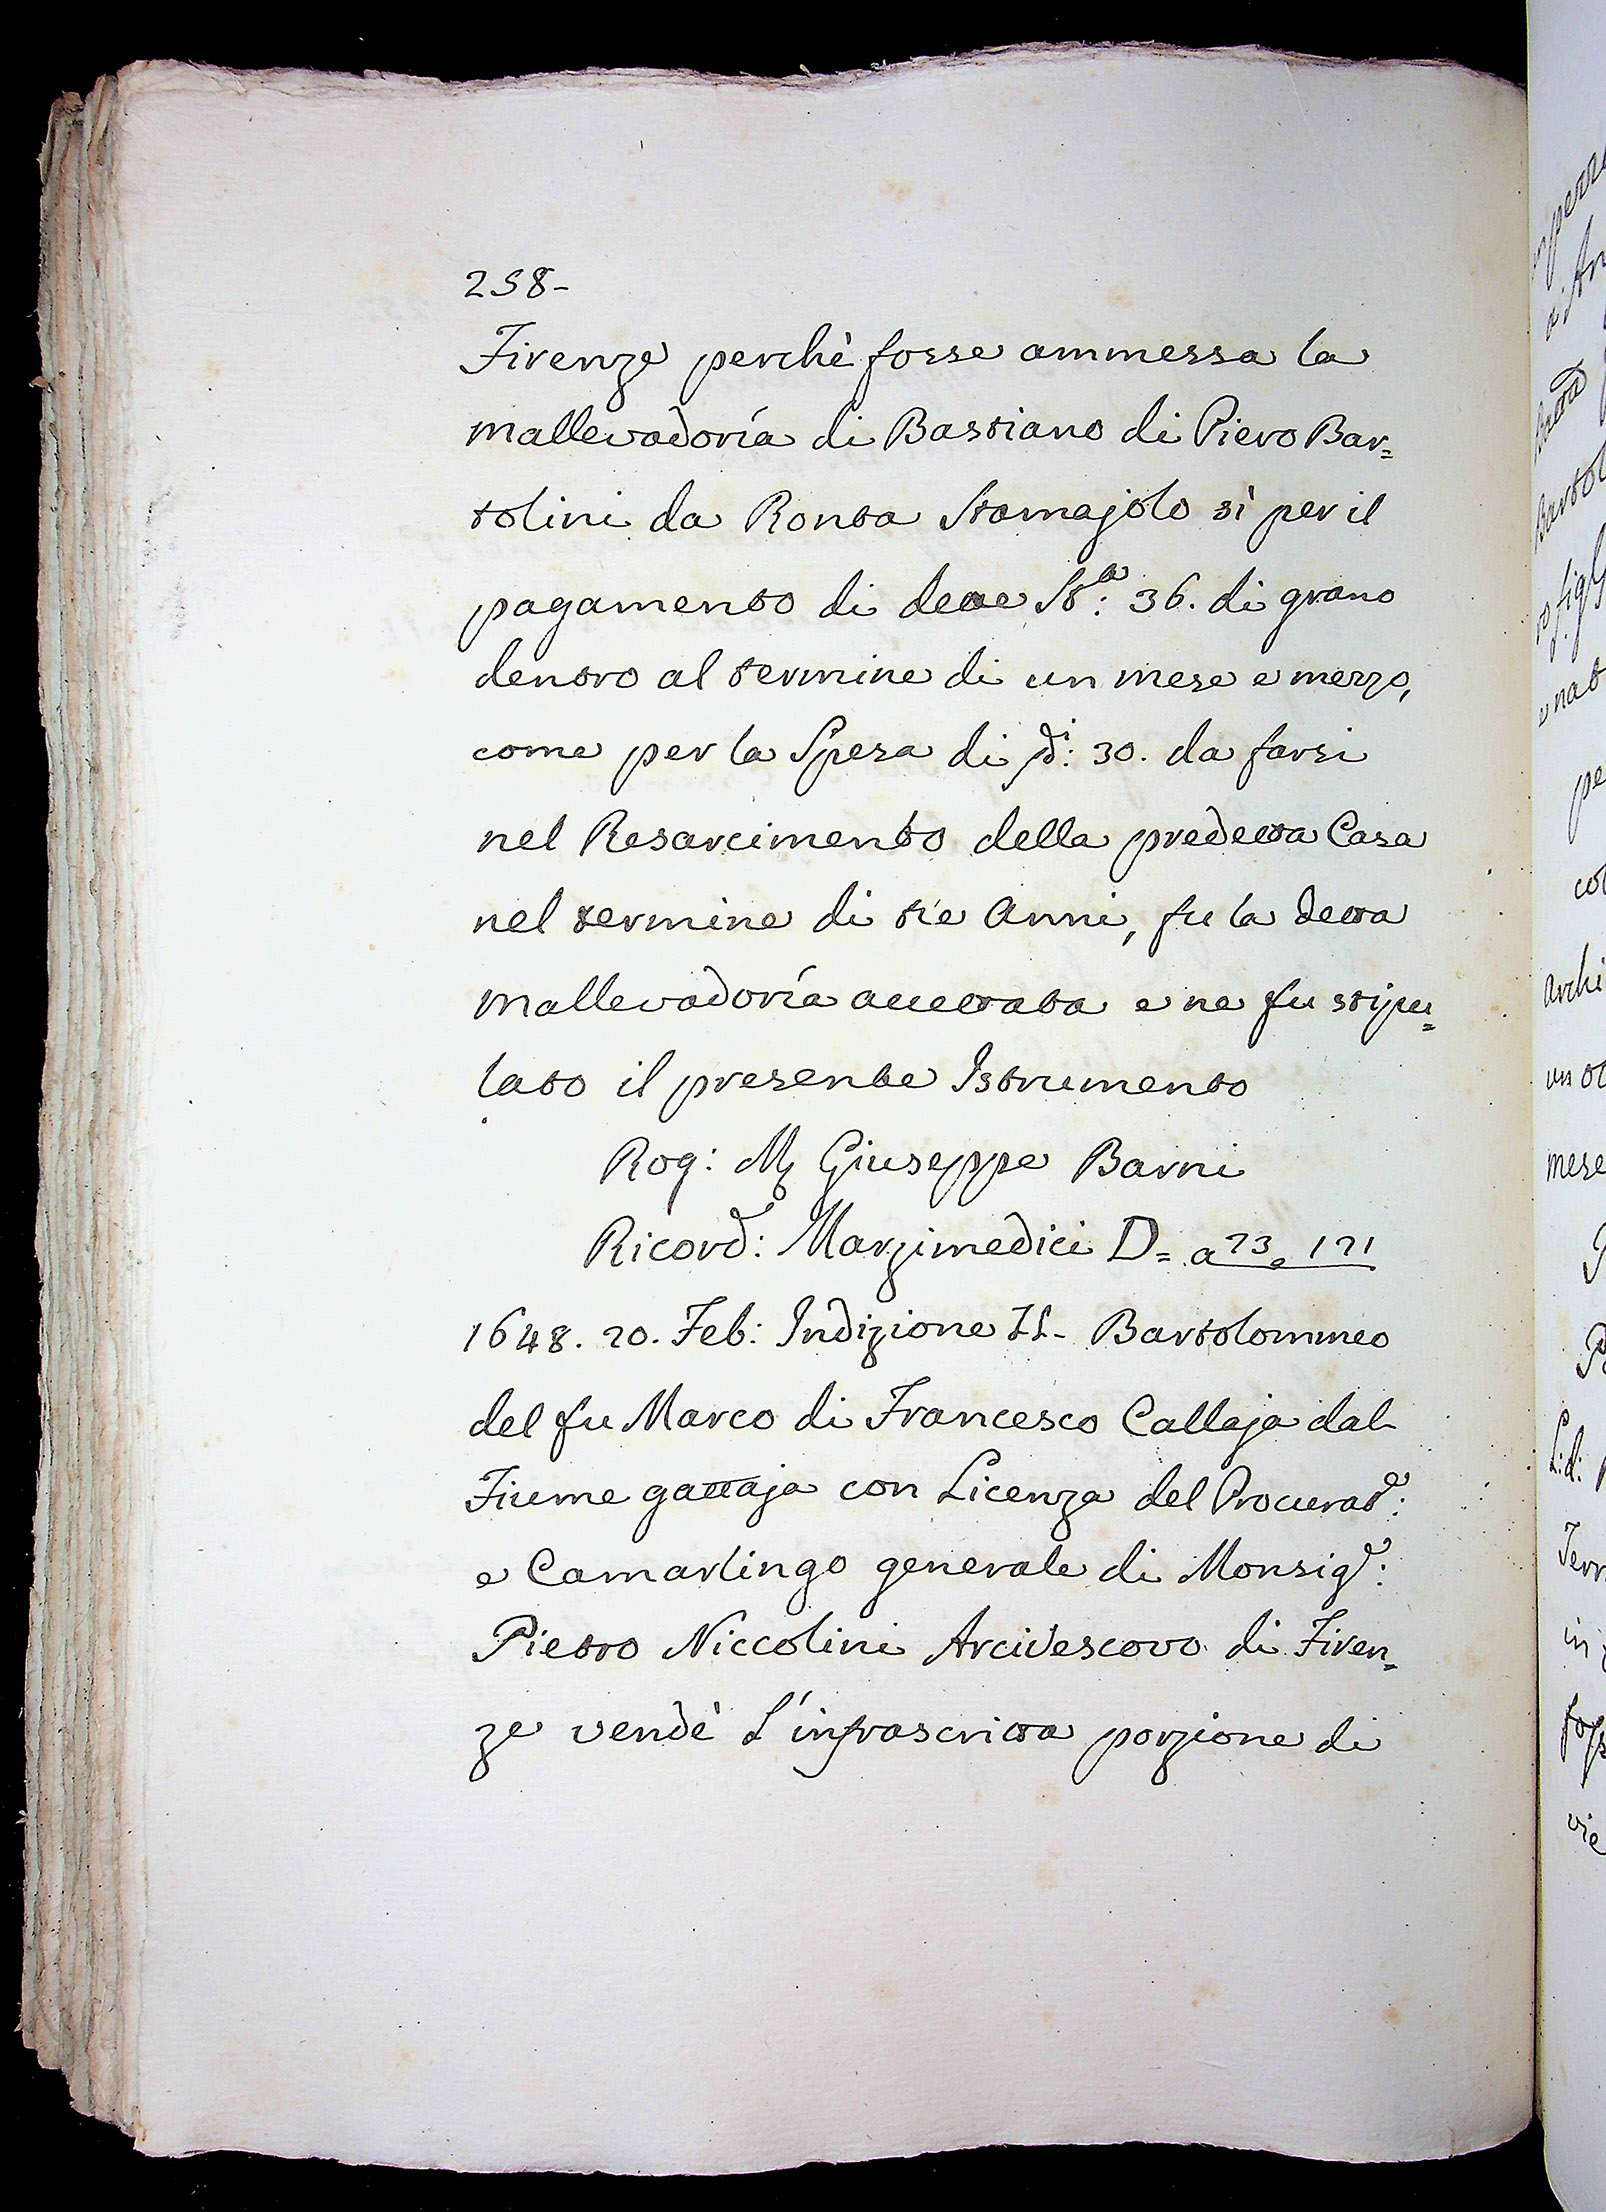 258-
Firenze perchè fosse ammessa la
mallevadoría di Bastiano di Piero Bar=
tolini da Ronta Stamajolo sì per il
pagamento di dette Sta: 36. di grano
dentro al termine di un mese e mezzo,
come per la Spesa di di: 30. da farsi
nel Resarcimento della predetta Casa
nel termine di tre Anni, fu la detta
mallevadoría accettata e ne fu stipu=
lato il presente Istrumento
Rog: M Giuseppe Barni
Ricord: Marzimedici D= a 23. 121
1648. 20. Feb: Indizione II- Bartolommeo
del fu Marco di Francesco Callaja dal
Fiume gattaja con Licenza del Procurate:
e Camarlingo generale di Monsige:
Pietro Niccolini Arcivescovo di Firen=
ze vendè l'infrascritta porzione di
Bartol
archi
mese